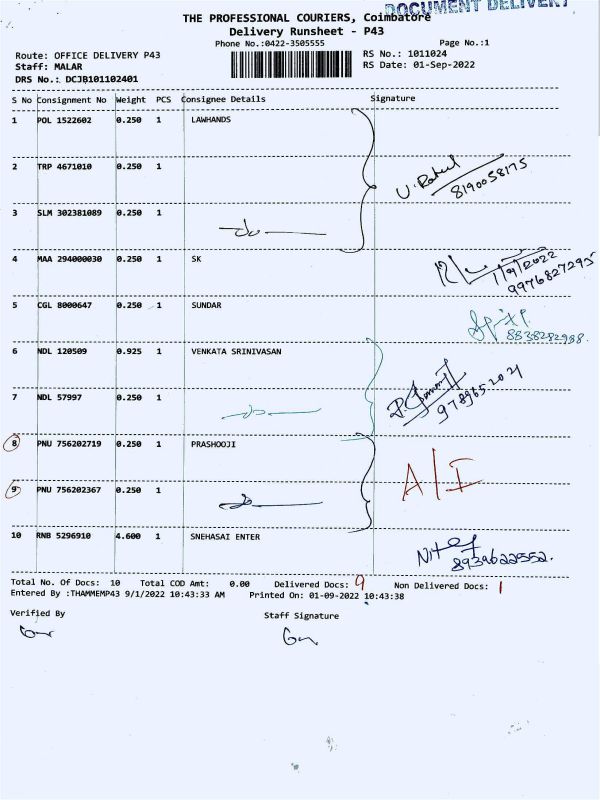 DOCUMENT DELIVERY
THE PROFESSIONAL COURIERS, Coimbatore
Delivery Runsheet - P43
Phone No.:0422-3505555 Page No.:1
Route: OFFICE DELIVERY P43 RS No.: 1011024
Staff: MALAR RS Date: 01-Sep-2022
DRS No.: DCJB101102401
S No Consignment No Weight PCS Consignee Details Signature
1 POL 1522602 0.250 1 LAWHANDS
2 TRP 4671010 0.250 1
U. Rahul
8190058175
3 SLM 302381089 0.250 1
-do-
4 MAA 294000030 0.250 1 SK
1/9/2022
9976827295
5 CGL 8000647 0.250 1 SUNDAR
8838282988.
6 NDL 120509 0.925 1 VENKATA SRINIVASAN
7 NDL 57997 0.250 1
-do-
9789652021
8 PNU 756202719 0.250 1 PRASHOOJI
A/I
9 PNU 756202367 0.250 1
-do-
10 RNB 5296910 4.600 1 SNEHASAI ENTER
8939622552.
Total No. Of Docs: 10 Total COD Amt: 0.00 Delivered Docs: 9 Non Delivered Docs: 1
Entered By :THAMMEMP43 9/1/2022 10:43:33 AM Printed On: 01-09-2022 10:43:38
Verified By Staff Signature